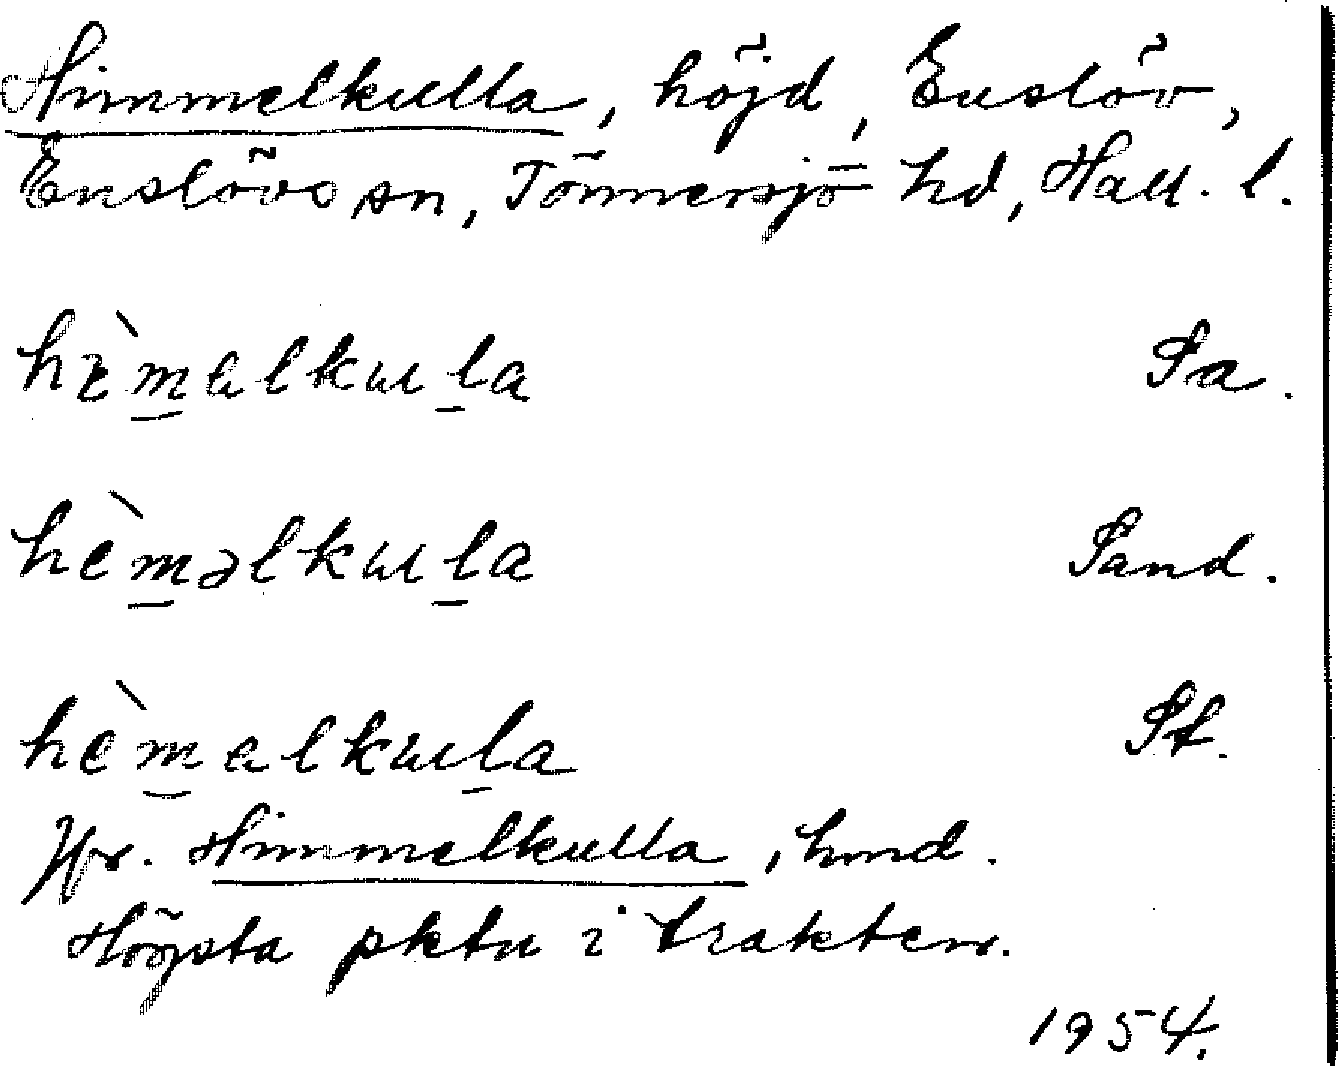 Himmelkulla, höjd, Enslöv,
Enslövs sn, Tönnersjö hd, Hall. l.
hèm̲alkul̲a Sa.
hèm̲əlkul̲a Sand.
hèm̲alkul̲a St.
Jfr. Himmelkulla, hmd.
Högsta pktn i trakten.
1954.